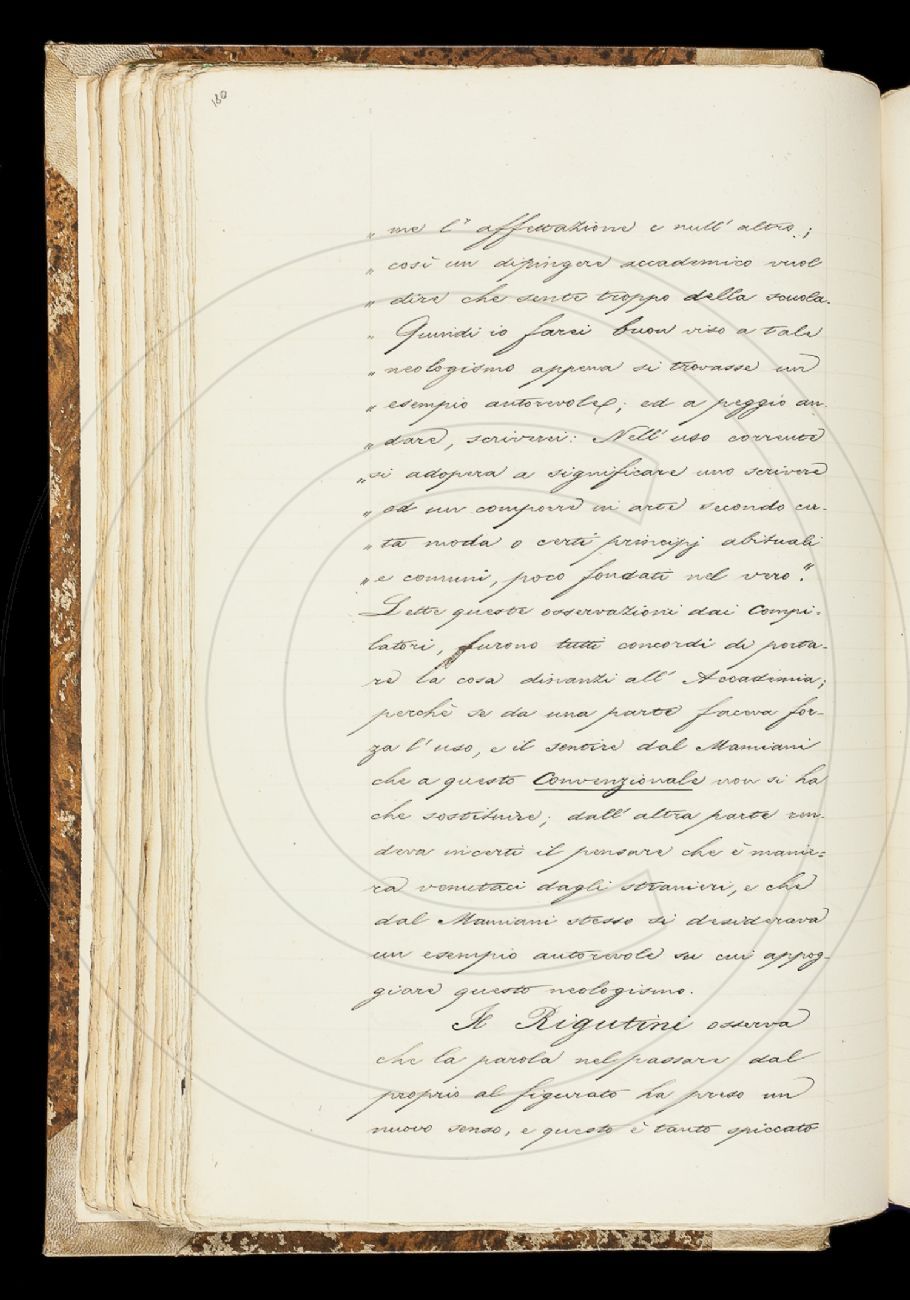 180
„ me l' affettazione e null' altro;
„ così un dipingere accademico vuol
„ dire che sente troppo della scuola.
„ Quindi io farei buon viso a tale
„ neologismo appena si trovasse un
„ esempio autorevole; ed a peggio an-
„ dare, scriverei: Nell' uso corrente
„ si adopera a significare uno scrivere
„ ed un comporre in arte secondo cer-
„ ta moda o certi principj abituali
„ e comuni, poco fondati nel vero."
Lette queste osservazioni dai Compi-
latori, furono tutti concordi di porta-
re la cosa dinanzi all' Accademia;
perchè se da una parte faceva for-
za l' uso, e il sentire dal Mamiani
che a questo Convenzionale non si ha
che sostituire; dall' altra parte ren-
deva incerti il pensare che è manie-
ra venutaci dagli stranieri, e che
dal Mamiani stesso si desiderava
un esempio autorevole su cui appog-
giare questo neologismo.
Il Rigutini osserva
che la parola nel passare dal
proprio al figurato ha preso un
nuovo senso, e questo è tanto spiccato